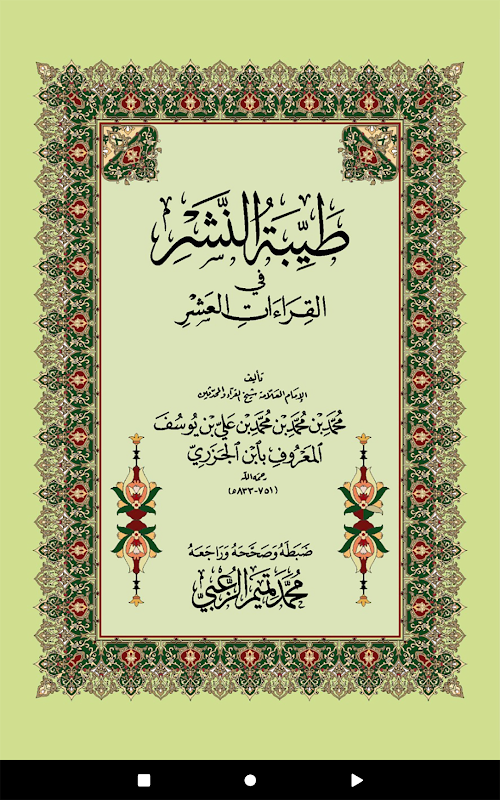 طَيِّبَةُ النَّشْرِ
في
القِرَاءَاتِ العَشْرِ
تأليف
الإمام العلامة شيخ القراء والمحدثين
مُحَمَّد بْن مُحَمَّد بْن مُحَمَّد بْن عَلِيّ بْن يُوسُفَ
المَعْرُوفِ بِٱبْنِ الْجَزَرِيِّ
رحمه الله
(٧٥١-٨٣٣هـ)
ضَبَطَهُ وَصَحَّحَهُ وَرَاجَعَهُ
مُحَمَّد تَمِيم الزُّعْبِي